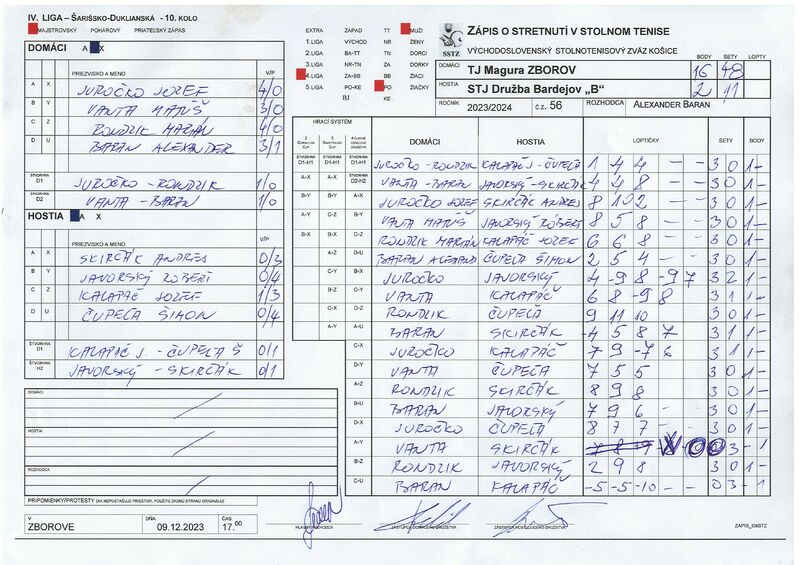 IV. LIGA – ŠARIŠSKO-DUKLIANSKÁ - 10. KOLO
MAJSTROVSKÝ POHÁROVÝ PRIATEĽSKÝ ZÁPAS
DOMÁCI A X
PRIEZVISKO A MENO V/P
A X JUROČKO JOZEF 4/0
B Y VANTA MATÚŠ 3/0
C Z RONDZIK MARIÁN 4/0
D U BARAN ALEXANDER 3/1
ŠTVORHRA D1 JUROČKO - RONDZIK 1/0
D2 VANTA - BARAN 1/0
HOSTIA A X
PRIEZVISKO A MENO V/P
A X SKIRČÁK ANDRES 0/3
B Y JAVORSKÝ RÓBERT 0/4
C Z KALAPÁČ JOZEF 1/3
D U ČUPEĽA ŠIMON 0/4
ŠTVORHRA D1 KALAPÁČ J. - ČUPEĽA Š 0/1
ŠTVORHRA H2 JAVORSKÝ - SKIRČÁK 0/1
DOMÁCI
HOSTIA
ROZHODCA
PRIPOMIENKY/PROTESTY (AK NEPOSTAČUJE PRIESTOR, POUŽITE ZADNÚ STRANU ORIGINÁLU)
V ZBOROVE DŇA 09.12.2023 ČAS 17.00
EXTRA ZÁPAD TT MUŽI
1.LIGA VÝCHOD NR ŽENY
2.LIGA BA-TT TN DORCI
3.LIGA NR-TN ZA DORKY
4.LIGA ZA-BB BB ŽIACI
5.LIGA PO-KE PO ŽIAČKY
BJ KE
SSTZ
ZÁPIS O STRETNUTÍ V STOLNOM TENISE
VÝCHODOSLOVENSKÝ STOLNOTENISOVÝ ZVÄZ KOŠICE
BODY SETY LOPTY
DOMÁCI TJ Magura ZBOROV 16 48
HOSTIA STJ Družba Bardejov „B“ 2 11
ROČNÍK 2023/2024 č.z. 56 ROZHODCA ALEXANDER BARAN
HRACÍ SYSTÉM
DOMÁCI HOSTIA LOPTIČKY SETY BODY
ŠTVORHRA D1-H1 ŠTVORHRA D1-H1 ŠTVORHRA D1-H1 JUROČKO - RONDZIK KALAPÁČ J - ČUPEĽA 1 4 4 - - 3 0 1 -
A-X A-X ŠTVORHRA D2-H2 VANTA - BARAN JAVORSKÝ - SKIRČÁK 4 4 8 - - 3 0 1 -
B-Y B-Y A-X JUROČKO JOZEF SKIRČÁK ANDRES 8 10 2 - - 3 0 1 -
A-Y C-Z B-Y VANTA MATÚŠ JAVORSKÝ RÓBERT 8 5 8 - - 3 0 1 -
B-X B-X C-Z RONDZIK MARIÁN KALAPÁČ JOZEF 6 6 8 - - 3 0 1 -
A-Z D-U BARAN ALEXAND ČUPEĽA ŠIMON 2 5 4 - - 3 0 1 -
C-Y B-X JUROČKO JAVORSKÝ 4 -9 8 -9 7 3 2 1 -
B-Z C-Y VANTA KALAPÁČ 6 8 -9 8 3 1 1 -
C-X D-Z RONDZIK ČUPEĽA 9 11 10 3 0 1 -
A-Y A-U BARAN SKIRČÁK -4 5 8 7 3 1 1 -
C-X JUROČKO KALAPÁČ 7 9 -7 6 3 1 1 -
D-Y VANTA ČUPEĽA 7 5 5 3 0 1 -
A-Z RONDZIK SKIRČÁK 8 9 8 3 0 1 -
B-U BARAN JAVORSKÝ 7 9 6 - 3 0 1 -
D-X JUROČKO ČUPEĽA 8 7 7 - - 3 0 1 -
A-Y VANTA SKIRČÁK 3 - 1
B-Z RONDZIK JAVORSKÝ 2 9 8 3 0 1 -
C-U BARAN KALAPÁČ -5 -5 -10 - - 0 3 - 1
HLAVNÝ ROZHODCA ZÁSTUPCA DOMÁCEHO DRUŽSTVA ZÁSTUPCA HOSŤUJÚCEHO DRUŽSTVA
ZÁPIS_OšSTZ